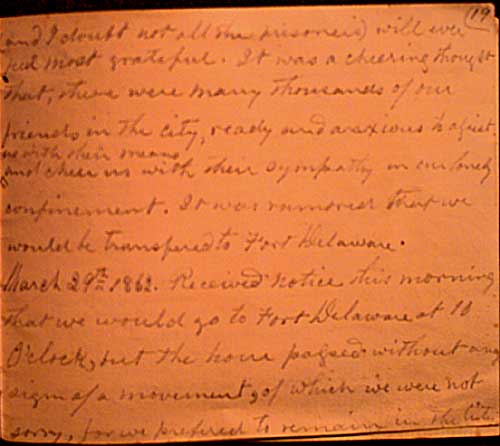 19
and I doubt not all the prisoners) will ever
feel most grateful. It was a cheering thought
that, there were many thousands of our
friends in the city, ready and anxious to assist
us with their means
and cheer us with their sympathy in our lonely
confinement. It was rumored that we
would be transfered to Fort Delaware.
March 29th 1862. Received notice this morning
that we would go to Fort Delaware at 10
O'clock, but the hour passed without any
signs of a movement, of which we were not
sorry, for we prefered to remain in the City